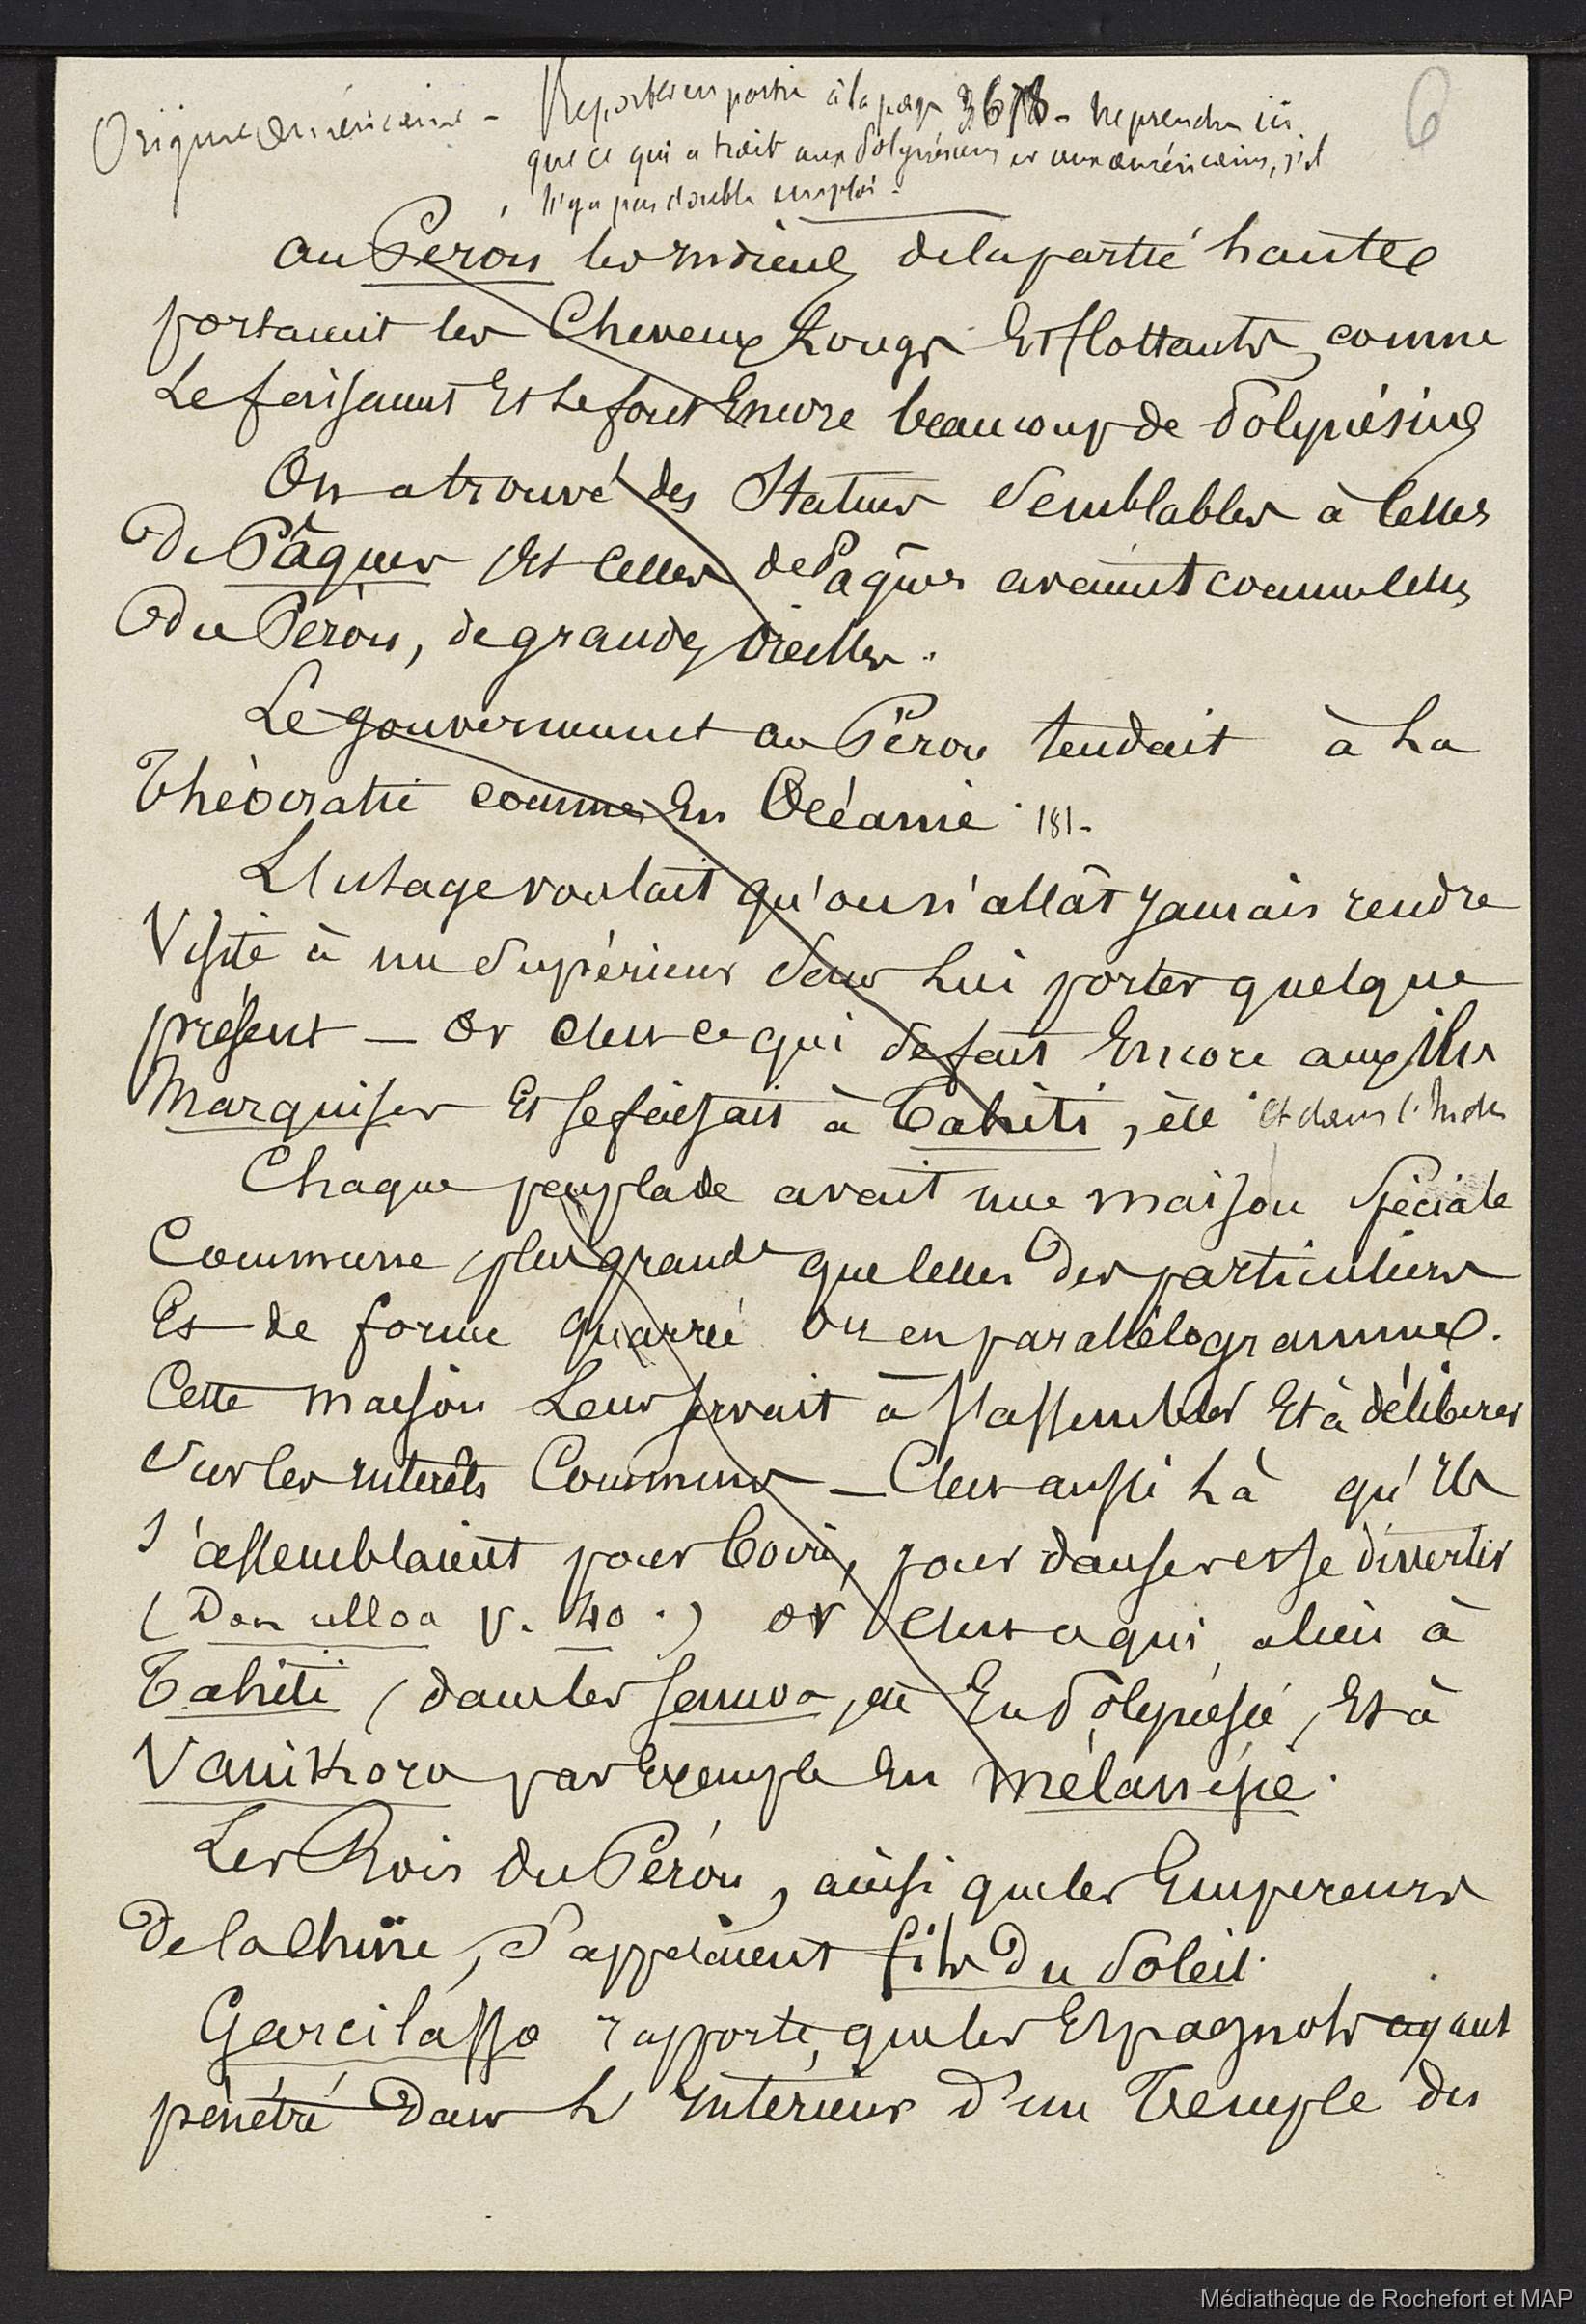 Origine américaine - Reporter en partie à la page 3678 - Reprendre ici
que ce qui a trait aux Polynésiens et aux américains, s'il
n'y a pas double emploi.
6
au Pérou les indiens de la partie haute
portaient les Cheveux Longs Et flottants, comme
Le faisaient Et Le font Encore beaucoup de Polynésiens
On a trouvé des Statues Semblables à Celles
De Pâques Et Celles de Pâques avaient comme celles
Du Pérou, de grandes Oreilles.
Le gouvernement au Pérou tendait à La
Théocratie comme En Océanie. 181-
L'usage voulait qu'on n'allât jamais rendre
Visite à un Supérieur Sans Lui porter quelque
présent — Or C'est ce qui Se fait Encore aux Iles
Marquises Et Se faisait à Tahiti, & Et dans l'Inde
Chaque peuplade avait une maison Spéciale
Commune, plus grande que celles Des particuliers
Et de forme quarrée ou en parallélogramme.
Cette maison Leur servait à s'assembler Et à délibérer
Sur les intérêts Communs — C'est aussi Là qu'ils
s'assemblaient pour boire, pour danser et se divertir
(Don ulloa p. 40.) or C'est ce qui a lieu à
Tahiti, dans les Samoa, & En Polynésie, Et à
Vanikoro par Exemple En mélanésie.
Les Rois du Pérou, ainsi que les Empereurs
De la Chine, S'appelaient fils Du Soleil.
Garcilasso rapporte, que les Espagnols ayant
pénétré Dans L'intérieur D'un Temple du
Médiathèque de Rochefort et MAP